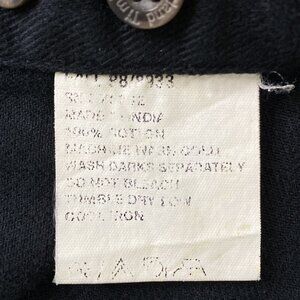 land Tim
MADE INDIA
100% COTTON
MACHINE WASH COLD
WASH DARKS SEPARATELY
DO NOT BLEACH
TUMBLE DRY LOW
COOL IRON